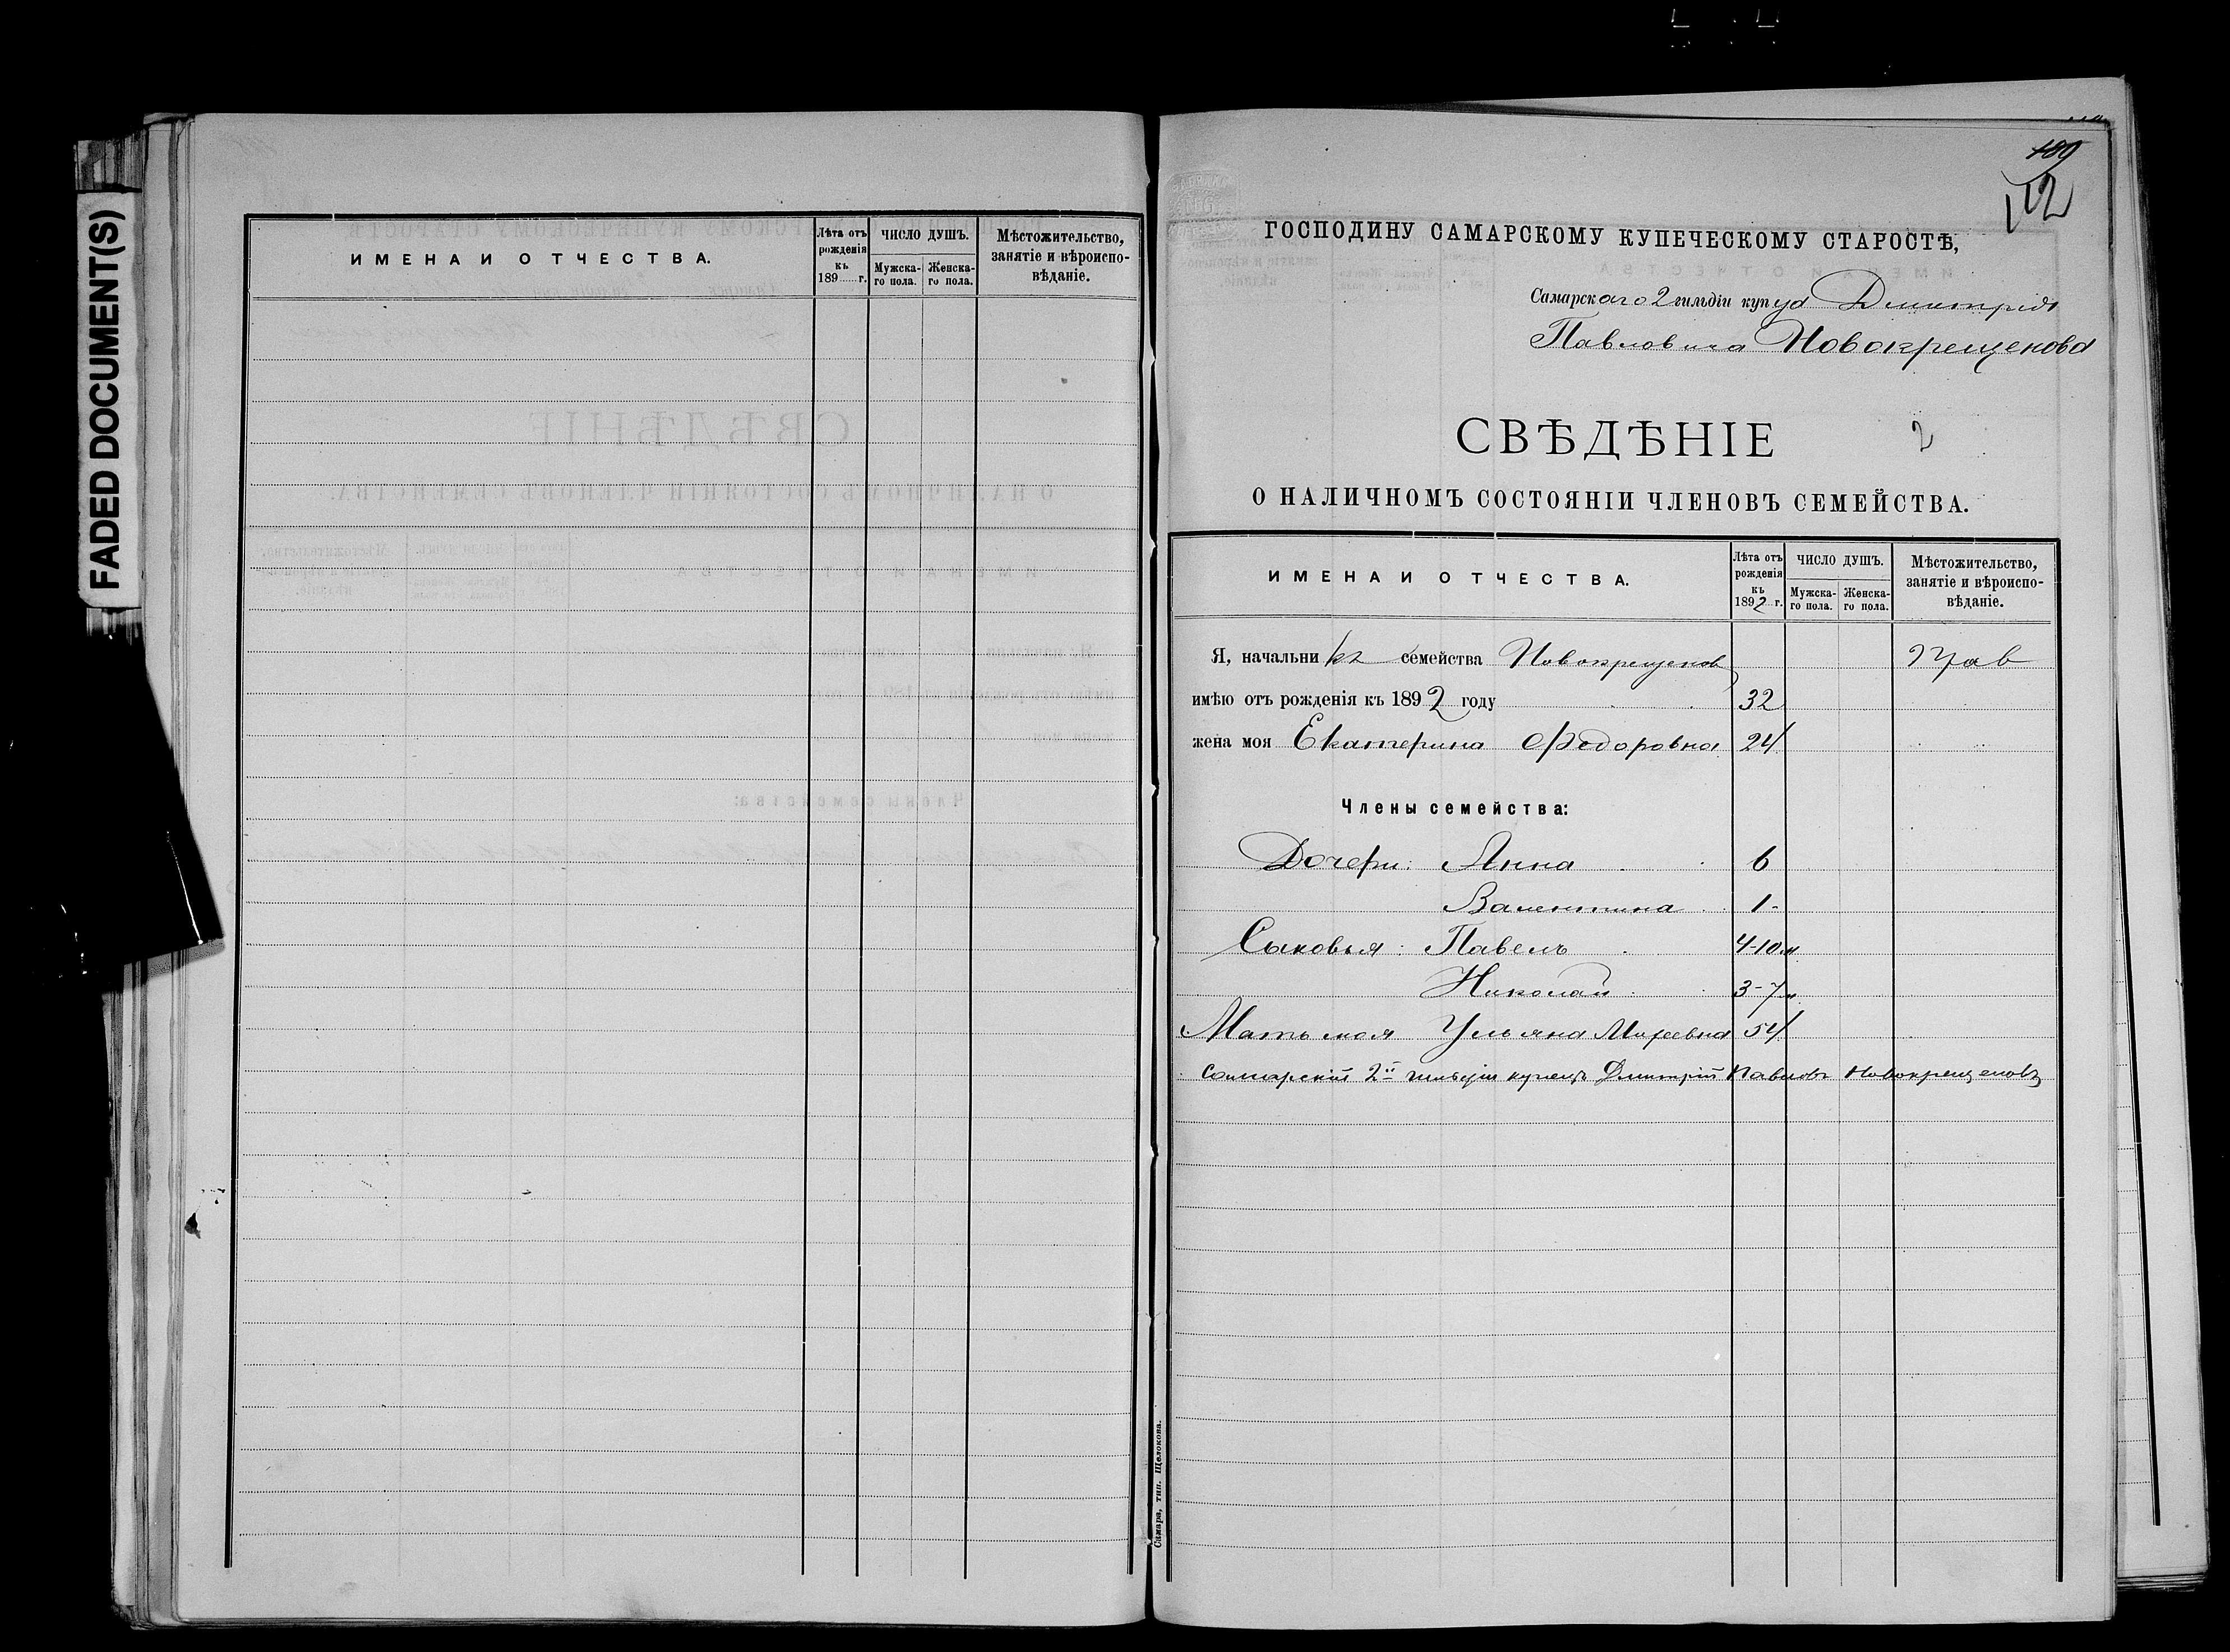 FADED DOCUMENT(S)
ИМЕНА И ОТЧЕСТВА.
Лѣта отъ рожденія къ 189 г.
ЧИСЛО ДУШЪ.
Мужска-го пола.
Женска-го пола.
Мѣстожительство, занятіе и вѣроиспо-вѣданіе.
109
112
ГОСПОДИНУ САМАРСКОМУ КУПЕЧЕСКОМУ СТАРОСТѢ,
Самарскаго 2 гильдіи купца Дмитрія
Павловича Новокрещенова
СВѢДѢНІЕ
2
О НАЛИЧНОМЪ СОСТОЯНІИ ЧЛЕНОВЪ СЕМЕЙСТВА.
ИМЕНА И ОТЧЕСТВА.
Лѣта отъ рожденія къ 1892 г.
ЧИСЛО ДУШЪ.
Мужска-го пола.
Женска-го пола.
Мѣстожительство, занятіе и вѣроиспо-вѣданіе.
Я, начальникъ семейства Новокрещеновъ Прав
имѣю отъ рожденія къ 1892 году 32
жена моя Екатерина Федоровна 24
Члены семейства:
Дочери: Анна 6
Валентина 1
Сыновья: Павелъ 4-10 м
Николай 3-7 м
Мать моя Ульяна 54
Самарскій 2й гильдіи купецъ Дмитрій Павловъ Новокрещеновъ
Самара, тип. Щелокова.